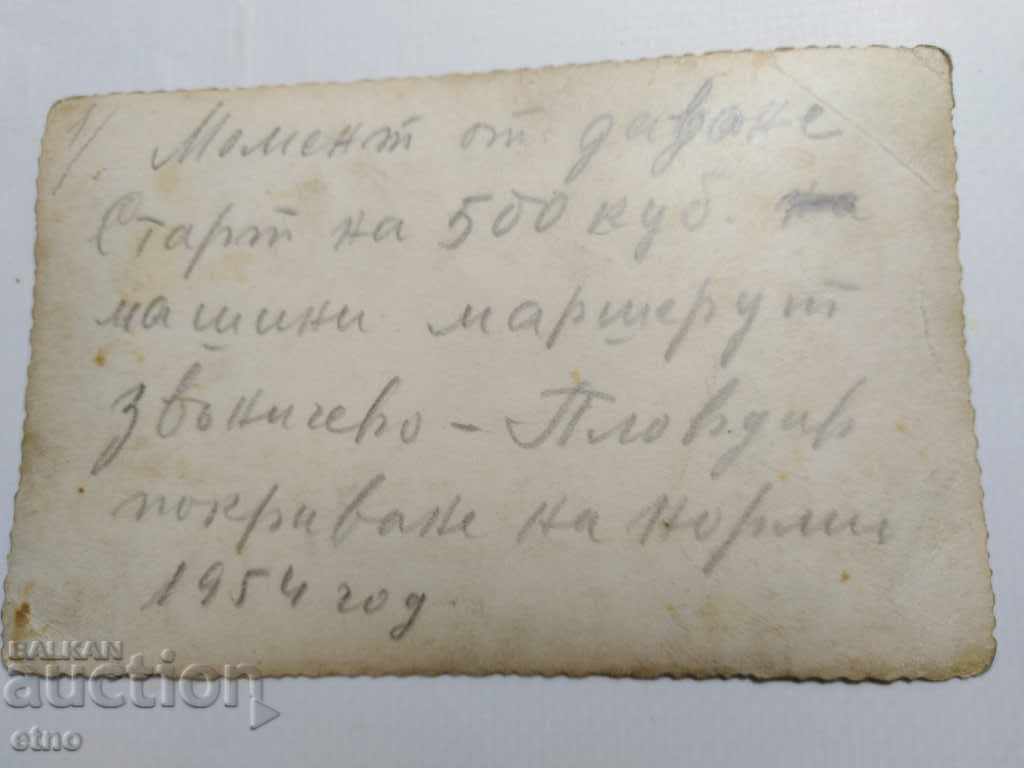 1/. Момент от даване
Старт на 500 куб. на
машини маршерут
Звъничево - Пловдив
покриване на норми
1954 год.
BALKAN
auction
etno